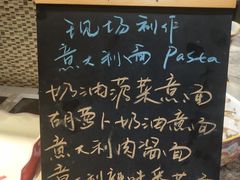 现场制作
意大利面 Pasta
奶油菠菜意面
胡萝卜奶油意面
意大利肉酱面
意大利